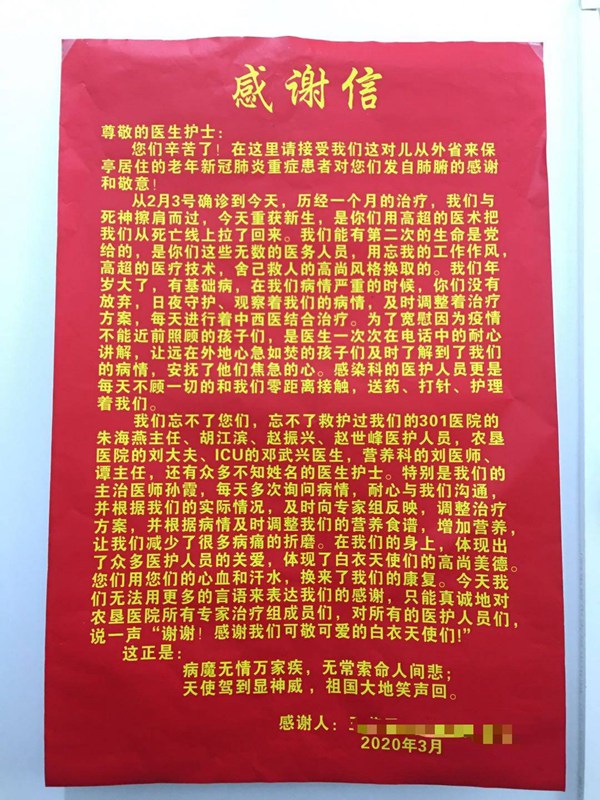 感谢信
尊敬的医生护士：
您们辛苦了！在这里请接受我们这对儿从外省来保
亭居住的老年新冠肺炎重症患者对您们发自肺腑的感谢
和敬意！
从2月3号确诊到今天，历经一个月的治疗，我们与
死神擦肩而过，今天重获新生，是你们用高超的医术把
我们从死亡线上拉了回来。我们能有第二次的生命是党
给的，是你们这些无数的医务人员，用忘我的工作作风，
高超的医疗技术，舍己救人的高尚风格换取的。我们年
岁大了，有基础病，在我们病情严重的时候，你们没有
放弃，日夜守护、观察着我们的病情，及时调整着治疗
方案，每天进行着中西医结合治疗。为了宽慰因为疫情
不能近前照顾的孩子们，是医生一次次在电话中的耐心
讲解，让远在外地心急如焚的孩子们及时了解到了我们
的病情，安抚了他们焦急的心。感染科的医护人员更是
每天不顾一切的和我们零距离接触，送药、打针、护理
着我们。
我们忘不了您们，忘不了救护过我们的301医院的
朱海燕主任、胡江滨、赵振兴、赵世峰医护人员，农垦
医院的刘大夫、ICU的邓武兴医生，营养科的刘医师、
谭主任，还有众多不知姓名的医生护士。特别是我们的
主治医师孙霞，每天多次询问病情，耐心与我们沟通，
并根据我们的实际情况，及时向专家组反映，调整治疗
方案，并根据病情及时调整我们的营养食谱，增加营养，
让我们减少了很多病痛的折磨。在我们的身上，体现出
了众多医护人员的关爱，体现了白衣天使们的高尚美德。
您们用您们的心血和汗水，换来了我们的康复。今天我
们无法用更多的言语来表达我们的感谢，只能真诚地对
农垦医院所有专家治疗组成员们，对所有的医护人员们，
说一声“谢谢！感谢我们可敬可爱的白衣天使们！”
这正是：
病魔无情万家疾，无常索命人间悲；
天使驾到显神威，祖国大地笑声回。
感谢人：
2020年3月